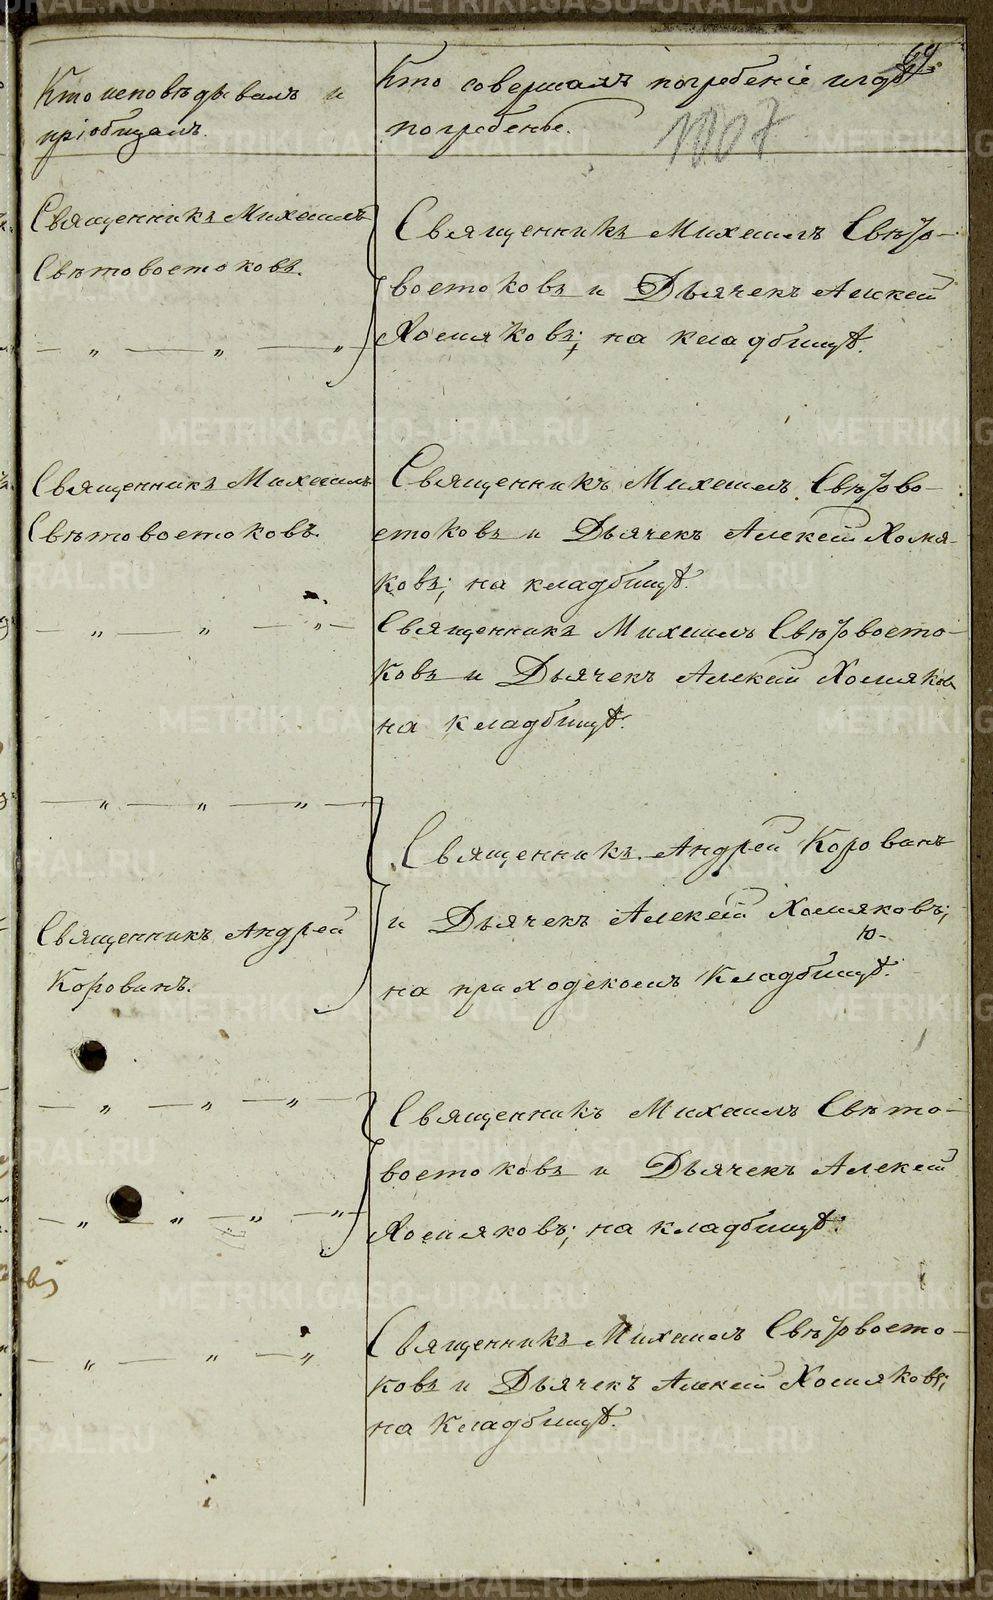 69.
Кто исповѣдывалъ и
пріобщалъ.
Кто совершалъ погребеніе и гдѣ
погребены.
1007
Священникъ Михаилъ
Свѣтовостоковъ.
— „ — „ — „
Священникъ Михаилъ Свѣто-
востоковъ и Дьячекъ Алексѣй
Хомяковъ; на кладбищѣ.
Священникъ Михаилъ
Свѣтовостоковъ.
— „ — „ — „ —
Священникъ Михаилъ Свѣтово-
стоковъ и Дьячекъ Алексѣй Хомя-
ковъ; на кладбищѣ.
Священникъ Михаилъ Свѣтовосто-
ковъ и Дьячекъ Алексѣй Хомяковъ
на кладбищѣ.
— „ — „ — „ —
Священникъ Андрей
Корованъ.
Священникъ Андрей Корованъ
и Дьячекъ Алексѣй Хомяковъ;
на приходскомъ кладбищѣ.
— „ — „ — „ —
— „ — „ — „ — „ —
Священникъ Михаилъ Свѣто-
востоковъ и Дьячекъ Алексѣй
Хомяковъ; на кладбищѣ.
— „ — „ — „
Священникъ Михаилъ Свѣтовосто-
ковъ и Дьячекъ Алексѣй Хомяковъ;
на кладбищѣ.
METRIKI.GASO-URAL.RU